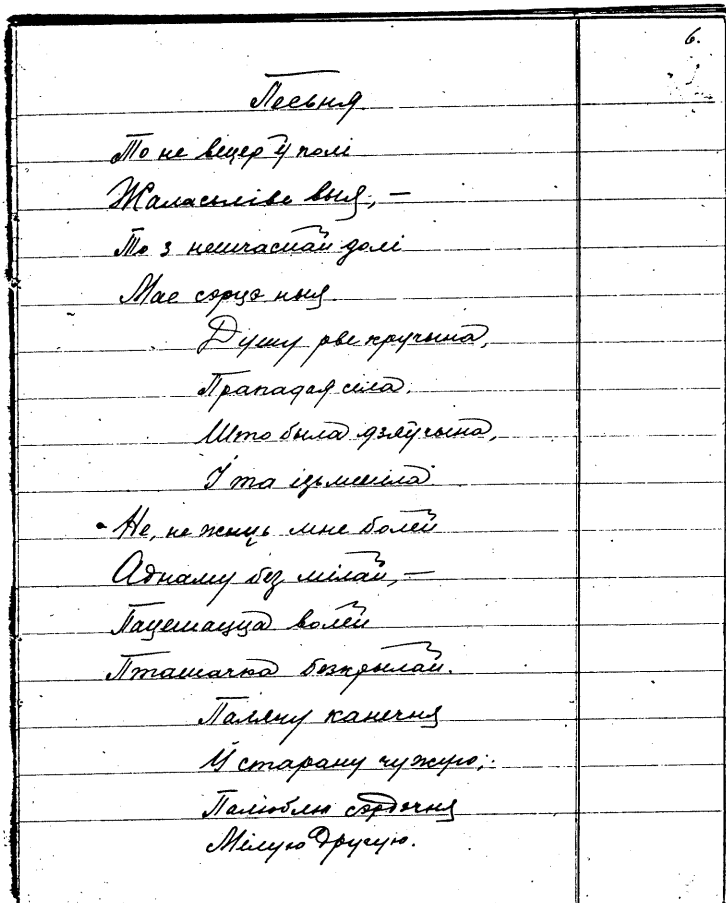 6.
Песьня
То не вецер ў полі
Жаласьліве выя, —
То з нешчаснай долі
Мае сэрцэ ныя.
Душу рве кручына,
Прападая сіла.
Што была дзяўчына,
І та ізьменіла
Не, не жыць мне болей
Аднаму без мілай, —
Пацешацца волей
Пташачка безкрылай.
Палячу канечня
Ў старану чужую;
Палюблю сэрдэчня
Мілую другую.